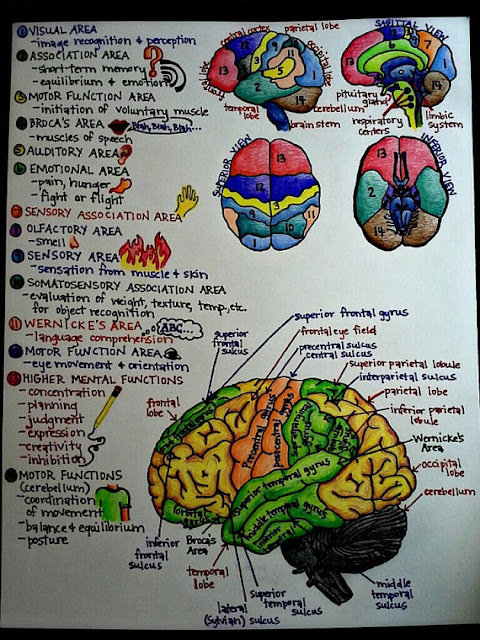 1 VISUAL AREA
-image recognition & perception
2 ASSOCIATION AREA
-short-term memory
-equilibrium & emotion
3 MOTOR FUNCTION AREA
-initiation of voluntary muscle
4 BROCA'S AREA
Blah, Blah, Blah...
-muscles of speech
5 AUDITORY AREA
6 EMOTIONAL AREA
-pain, hunger
-fight or flight
SENSORY ASSOCIATION AREA
OLFACTORY AREA
-smell
9 SENSORY AREA
-sensation from muscle & skin
10 SOMATOSENSORY ASSOCIATION AREA
-evaluation of weight, texture, temp., etc.
for object recognition
11 WERNICKE'S AREA
ABC...
-language comprehension
MOTOR FUNCTION AREA
-eye movement & orientation
13 HIGHER MENTAL FUNCTIONS
-concentration
-planning
-judgment
-expression
-creativity
-inhibition
MOTOR FUNCTIONS
(cerebellum)
-coordination
of movement
-balance & equilibrium
-posture
central cortex
parietal lobe
frontal lobe
occipital lobe
temporal lobe
cerebellum
brain stem
13
12
3
9
10
11
5
2
1
14
SAGITTAL VIEW
13
12
7
1
14
pituitary
gland
respiratory
centers
limbic
system
SUPERIOR VIEW
13
12
9
3
10
11
1
1
INFERIOR VIEW
13
2
14
superior frontal gyrus
frontal eye field
precentral sulcus
central sulcus
superior
frontal
sulcus
superior parietal lobule
interparietal sulcus
parietal lobe
inferior parietal
lobule
Wernicke's
Area
occipital
lobe
cerebellum
frontal
lobe
Precentral gyrus
postcentral gyrus
supramarginal
gyrus
superior temporal gyrus
middle temporal gyrus
orbital
gyrus
Broca's
Area
inferior
frontal
sulcus
temporal
lobe
lateral
(sylvian) sulcus
superior
temporal
sulcus
middle
temporal
sulcus